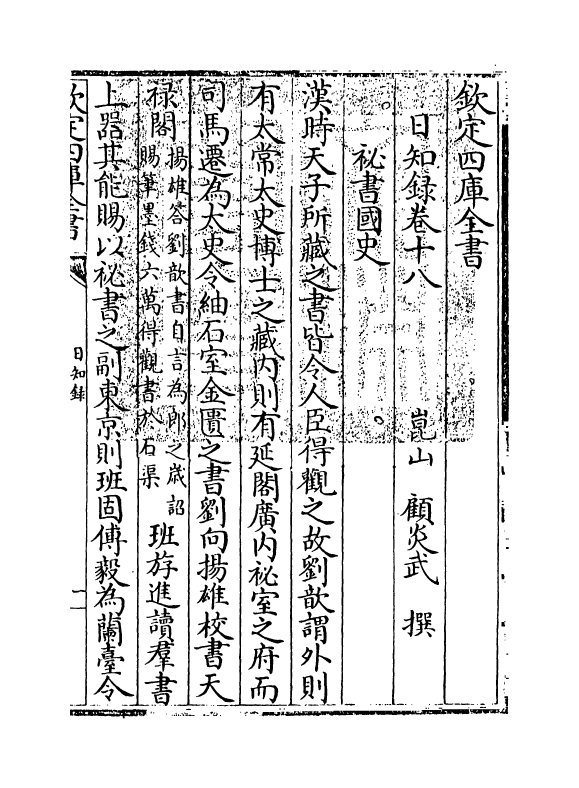 欽定四庫全書
日知録卷十八
崑山 顧炎武 撰
祕書國史
漢時天子所藏之書皆令人臣得觀之故劉歆謂外則
有太常太史博士之藏内則有延閣廣内祕室之府而
司馬遷為太史令紬石室金匱之書劉向揚雄校書天
禄閣
揚雄答劉歆書自言為郎之歳詔
賜筆墨錢六萬得觀書於石渠
班斿進讀羣書
上器其能賜以祕書之副東京則班固傅毅為蘭臺令
欽定四庫全書
日知録
一